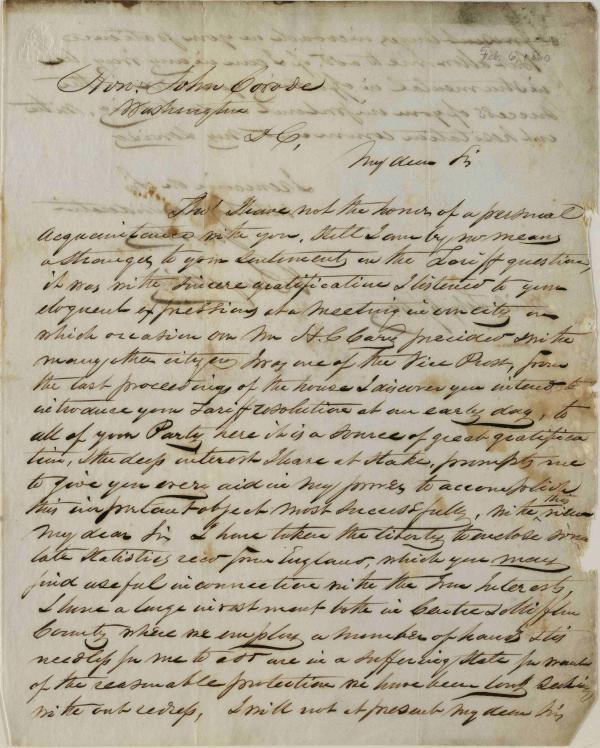 Feb. 6, 1860
Hon: John Covode
Washington
D C,
My dear Sir
Tho' I have not the honor of a personal
acquaintance with you, still I am by no means
a stranger to your sentiments on the Tariff question,
it was with sincere gratification I listened to your
eloquent expressions at a meeting in our city on
which occasion our Mr H. C. Carey presided & with
many other citizens I was one of the Vice Prest, from
the last proceedings of the house I discover you intend to
introduce your Tariff resolution at an early day, to
all of your Party here it is a source of great gratifica
tion, & the deep interest I have at stake, prompts me
to give you every aid in my power to accomplish
this important object most successfully, with this view
my dear Sir I have taken the liberty to enclose some
late Statistics recd from England, which you may
find useful in connection with the Iron Interests,
I have a large investment both in Centre & Mifflin
County where we employ a number of hands & tis
needless for me to add are in a suffering state for want
of the reasonable protection we have been long seeking
with out redress, I will not at present my dear Sir